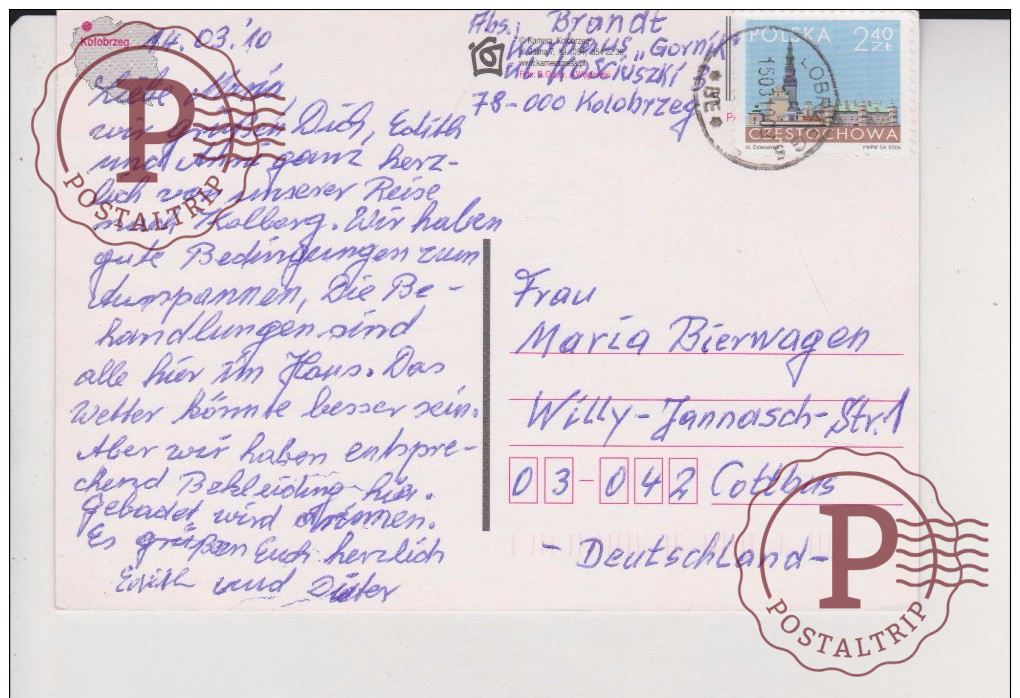 Kołobrzeg
14.03.'10
Liebe Maria,
wir grüßen Dich, Edith
und Anni ganz herz-
lich von unserer Reise
nach Kolberg. Wir haben
gute Bedingungen zum
Ausspannen, Die Be-
handlungen sind
alle hier im Haus. Das
Wetter könnte besser sein.
Aber wir haben entspre-
chend Bekleidung hier.
Gebadet wird drinnen.
Es grüßen Euch herzlich
Edith und Dieter
Abs.: Brandt
Kurhaus "Gornik"
ul. Kościuszki
78-000 Kolobrzeg
© Kamera, Kołobrzeg
www.kamerapress.pl
POLSKA 2 40 ZŁ
CZĘSTOCHOWA
PWPW SA 2006
Frau
Maria Bierwagen
Willy-Jannasch-Str. 1
03-042 Cottbus
- Deutschland -
P
POSTALTRIP
P
POSTALTRIP